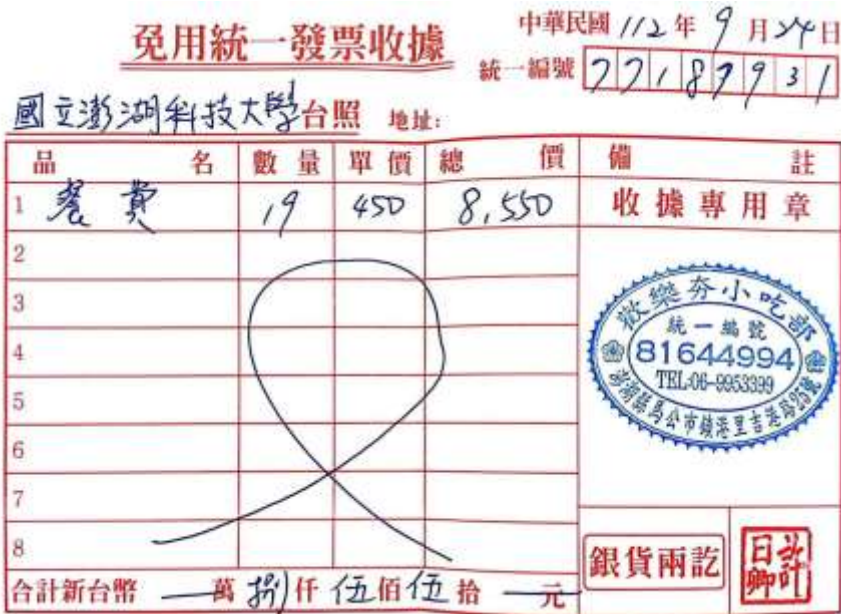 免用統一發票收據
中華民國 112 年 9 月 24 日
統一編號 77187931
國立澎湖科技大學台照 地址:
品名 數量 單價 總價 備註
1 餐費 19 450 8,550 收據專用章
2
3
4
5
6
7
8
歡樂夯小吃部
統一編號
81644994
TEL:06-9953399
澎湖縣馬公市鎖港里吉港路25號
銀貨兩訖
合計新台幣 — 萬 捌 仟 伍 佰 伍 拾 — 元